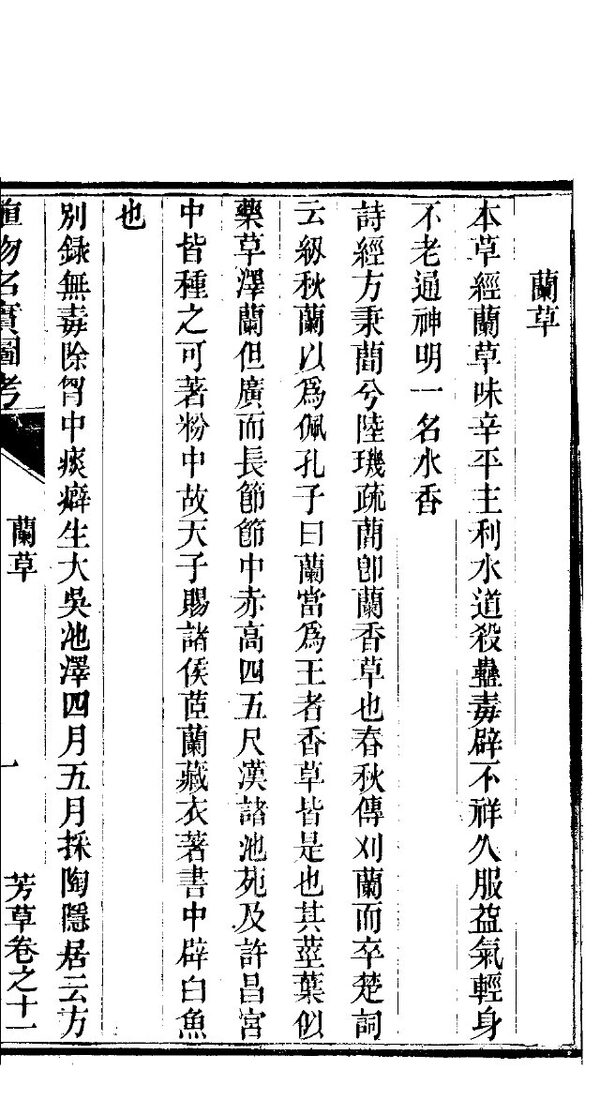 蘭草
本草經蘭草味辛平主利水道殺蠱毒辟不祥久服益氣輕身
不老通神明一名水香
詩經方秉蕑兮陸璣疏蕑卽蘭香草也春秋傳刈蘭而卒楚詞
云紉秋蘭以爲佩孔子曰蘭當爲王者香草皆是也其莖葉似
藥草澤蘭但廣而長節節中赤高四五尺漢諸池苑及許昌宮
中皆種之可著粉中故天子賜諸侯茝蘭藏衣著書中辟白魚
也
別録無毒除胷中痰癖生大吳池澤四月五月採陶隱居云方
植物名實圖考
蘭草
一
芳草卷之十一